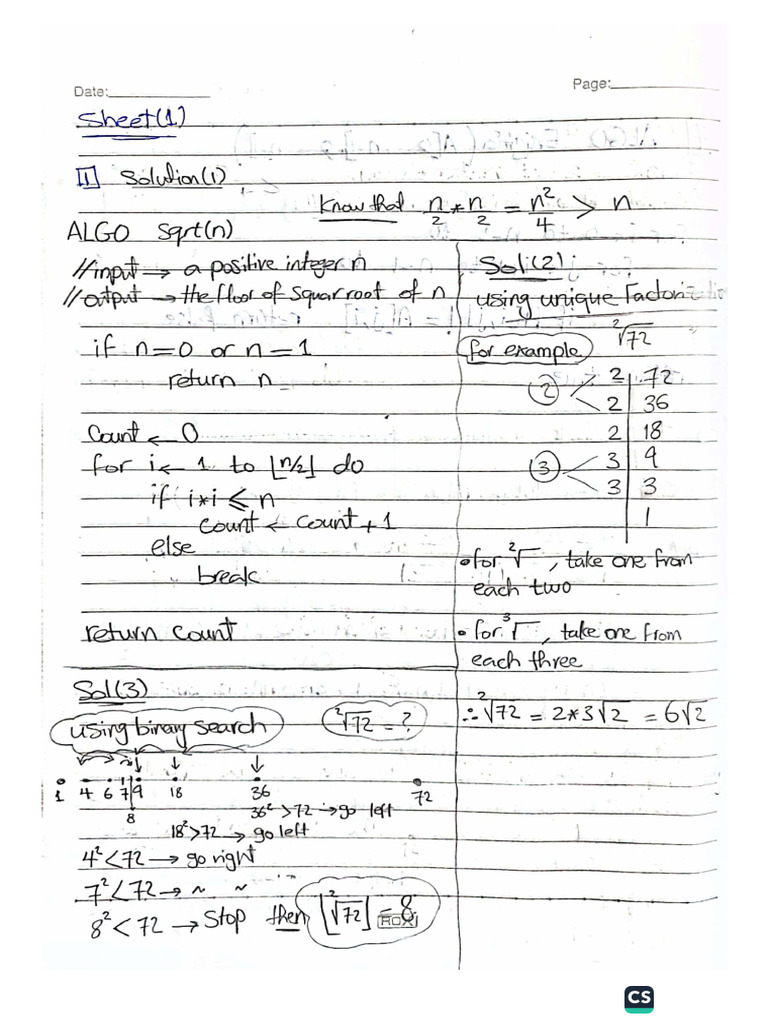 Date:
Page:
Sheet(1)
1 Solution(1)
Know that n/2 * n/2 = n²/4 > n
ALGO Sqrt(n)
//input → a positive integer n
//output → the floor of squar root of n
if n=0 or n=1
return n
Count ← 0
for i ← 1 to ⌊n/2⌋ do
if i*i ≤ n
count ← count + 1
else
break
return count
Sol:(2):
using unique Factoriz
for example ²√72
2 2 | 72
2 | 36
2 | 18
3 3 | 9
3 | 3
1
• for ²√ , take one from
each two
• for ³√ , take one from
each three
∴ ²√72 = 2*3√2 = 6√2
Sol(3)
using binary search ²√72 = ?
1 4 6 7 9 18 36 72
8
36² > 72 → go left
18² > 72 → go left
4² < 72 → go right
7² < 72 → ~ ~
8² < 72 → Stop then ⌊²√72⌋ = 8
CS